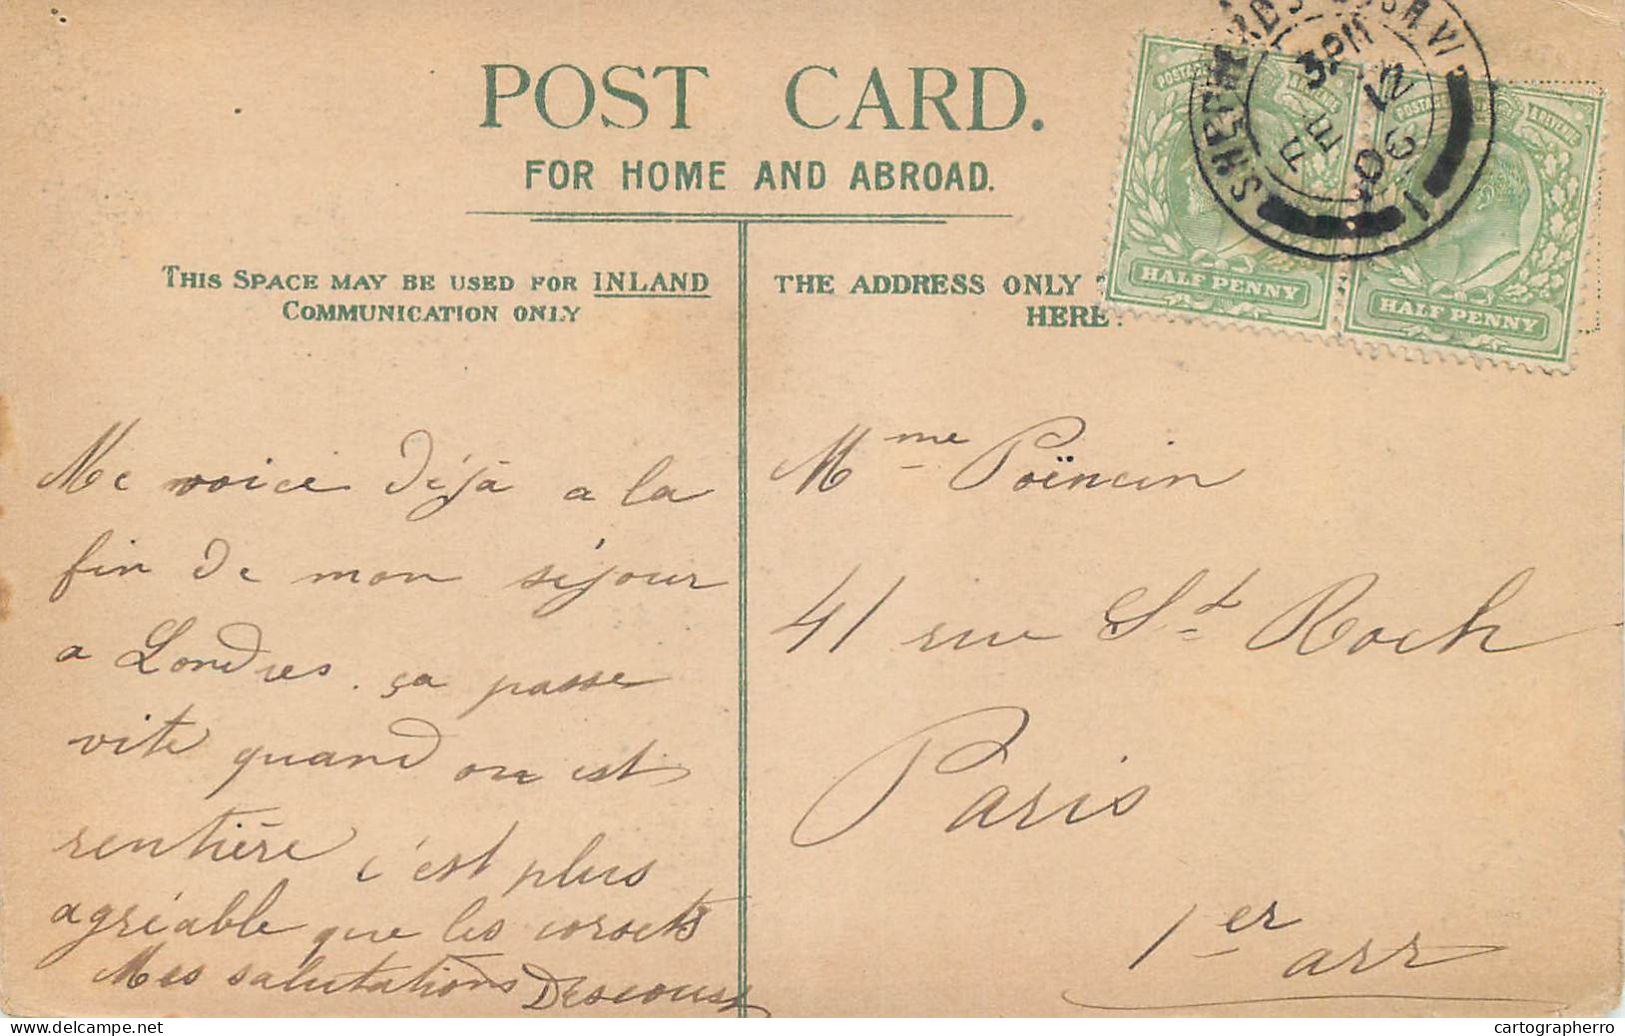 POST CARD.
FOR HOME AND ABROAD.
THIS SPACE MAY BE USED FOR INLAND
COMMUNICATION ONLY
THE ADDRESS ONLY
HERE.
HALF PENNY
HALF PENNY
SHEPHERDS BUSH W
3 PM
06
1
Me voici déjà a la
fin de mon séjour
a Londres. ça passe
vite quand on est
rentière c'est plus
agréable que les corsets
Mes salutations
Mme Poëncin
41 rue St Roch
Paris
1er arr
cartographerro